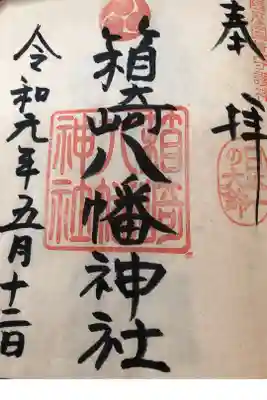 奉拝
箱崎八幡神社
令和元年五月十二日
箱崎
八幡
神社